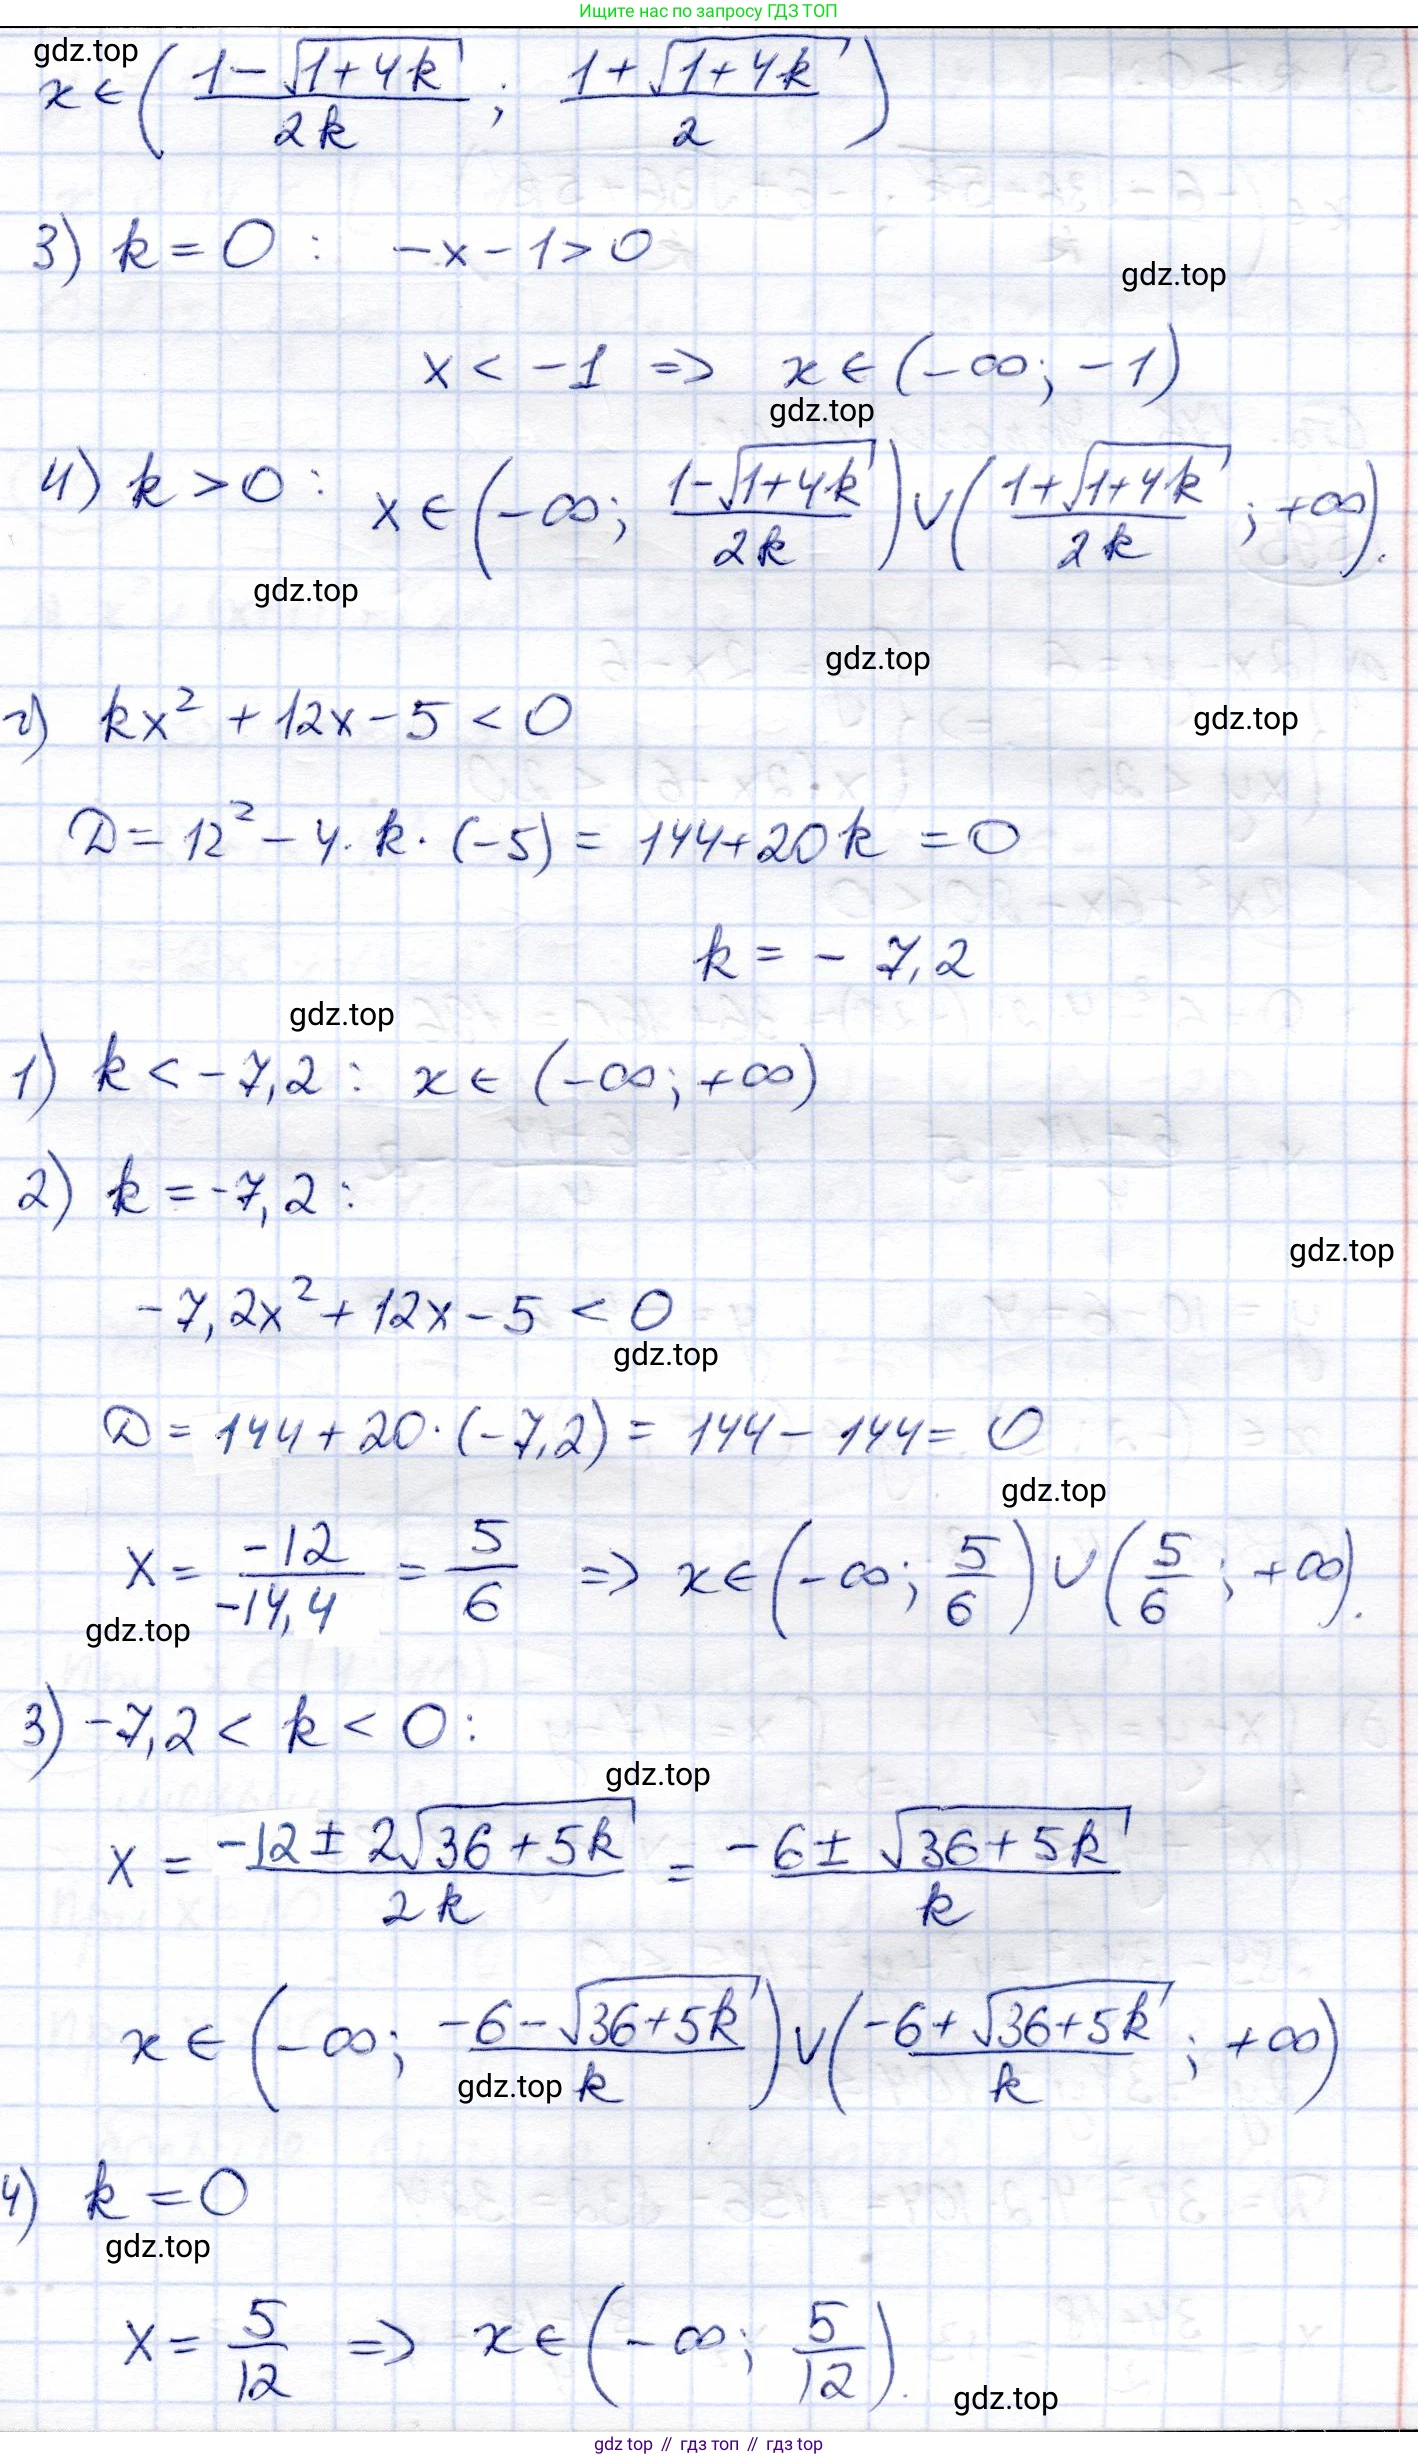 Ищите нас по запросу ГДЗ ТОП
gdz.top
x ∈ ( (1 − √(1+4k)) / 2k ; (1 + √(1+4k)) / 2 )
3) k = 0 : −x − 1 > 0
gdz.top
x < −1 => x ∈ (−∞; −1)
gdz.top
4) k > 0 : x ∈ (−∞; (1−√(1+4k)) / 2k) ∪ ((1+√(1+4k)) / 2k ; +∞).
gdz.top
gdz.top
г) kx² + 12x − 5 < 0
gdz.top
D = 12² − 4 · k · (−5) = 144 + 20k = 0
k = − 7,2
gdz.top
1) k < −7,2 : x ∈ (−∞; +∞)
2) k = −7,2 :
gdz.top
−7,2x² + 12x − 5 < 0
gdz.top
D = 144 + 20 · (−7,2) = 144 − 144 = 0
gdz.top
x = −12 / −14,4 = 5/6 => x ∈ (−∞; 5/6) ∪ (5/6 ; +∞).
gdz.top
3) −7,2 < k < 0 :
gdz.top
x = (−12 ± 2√(36 + 5k)) / 2k = (−6 ± √(36 + 5k)) / k
x ∈ (−∞; (−6 − √(36+5k)) / k) ∪ ((−6 + √(36+5k)) / k ; +∞)
gdz.top
4) k = 0
gdz.top
x = 5/12 => x ∈ (−∞; 5/12).
gdz.top
gdz top // гдз топ // гдз top